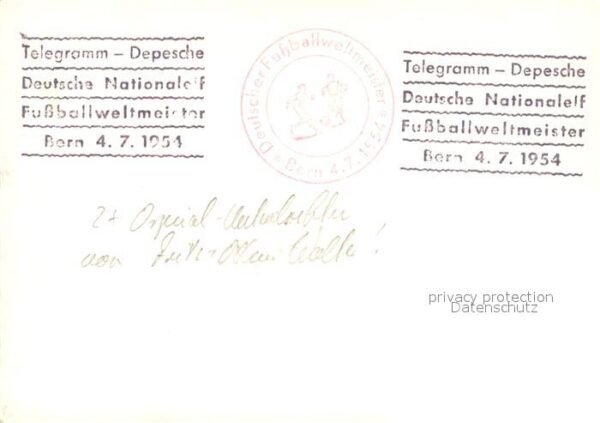 Telegramm – Depesche
Deutsche Nationalelf
Fußballweltmeister
Bern 4. 7. 1954
Deutscher Fußballweltmeister
* Bern 4.7.1954 *
Telegramm – Depesche
Deutsche Nationalelf
Fußballweltmeister
Bern 4. 7. 1954
2x Original-
von Fritz + Ottmar Walter!
privacy protection
Datenschutz